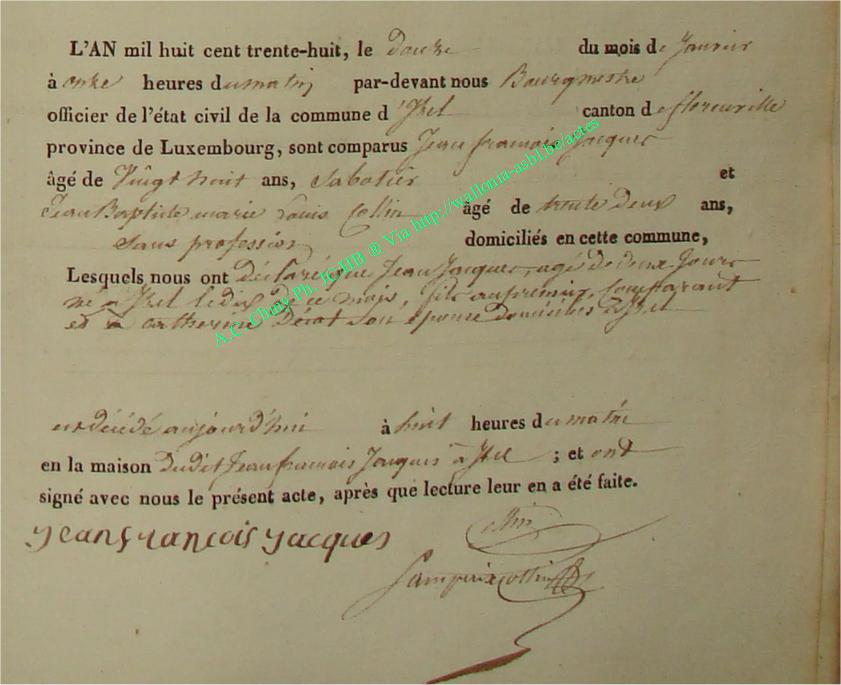 L'AN mil huit cent trente-huit, le douze du mois de Janvier
à onze heures du matin par-devant nous Bourgmestre
officier de l'état civil de la commune d'Izel canton de florenville
province de Luxembourg, sont comparus Jean françois Jacques
âgé de Vingt huit ans, Sabotier et
Jean Baptiste marie Louis Collin âgé de trente deux ans,
Sans profession domiciliés en cette commune,
Lesquels nous ont déclaré que Jean Jacques, agé de deux Jours
né à Izel le dix de ce mois, fils au premier Comparant
et à catherine son épouse domiciliés à Izel
est décédé aujourd'hui à huit heures du matin
en la maison dudit Jean francois Jacques à Izel ; et ont
signé avec nous le présent acte, après que lecture leur en a été faite.
Jean francois Jacques
Collin
A.C. Chiny Ph. JCHB ® Via http://wallonia-asbl.be/actes